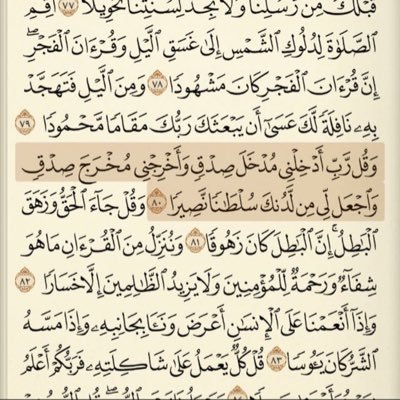 قَبْلَكَ مِن رُّسُلِنَا وَلَا تَجِدُ لِسُنَّتِنَا تَحْوِيلًا ٧٧ أَقِمِ
ٱلصَّلَوٰةَ لِدُلُوكِ ٱلشَّمْسِ إِلَىٰ غَسَقِ ٱلَّيْلِ وَقُرْءَانَ ٱلْفَجْرِۖ
إِنَّ قُرْءَانَ ٱلْفَجْرِ كَانَ مَشْهُودًا ٧٨ وَمِنَ ٱلَّيْلِ فَتَهَجَّدْ
بِهِۦ نَافِلَةً لَّكَ عَسَىٰٓ أَن يَبْعَثَكَ رَبُّكَ مَقَامًا مَّحْمُودًا ٧٩
وَقُل رَّبِّ أَدْخِلْنِي مُدْخَلَ صِدْقٍ وَأَخْرِجْنِي مُخْرَجَ صِدْقٍ
وَٱجْعَل لِّي مِن لَّدُنكَ سُلْطَٰنًا نَّصِيرًا ٨٠ وَقُلْ جَآءَ ٱلْحَقُّ وَزَهَقَ
ٱلْبَٰطِلُۚ إِنَّ ٱلْبَٰطِلَ كَانَ زَهُوقًا ٨١ وَنُنَزِّلُ مِنَ ٱلْقُرْءَانِ مَا هُوَ
شِفَآءٌ وَرَحْمَةٌ لِّلْمُؤْمِنِينَ وَلَا يَزِيدُ ٱلظَّٰلِمِينَ إِلَّا خَسَارًا ٨٢
وَإِذَآ أَنْعَمْنَا عَلَى ٱلْإِنسَٰنِ أَعْرَضَ وَنَـَٔا بِجَانِبِهِۦ وَإِذَا مَسَّهُ
ٱلشَّرُّ كَانَ يَـُٔوسًا ٨٣ قُلْ كُلٌّ يَعْمَلُ عَلَىٰ شَاكِلَتِهِۦ فَرَبُّكُمْ أَعْلَمُ